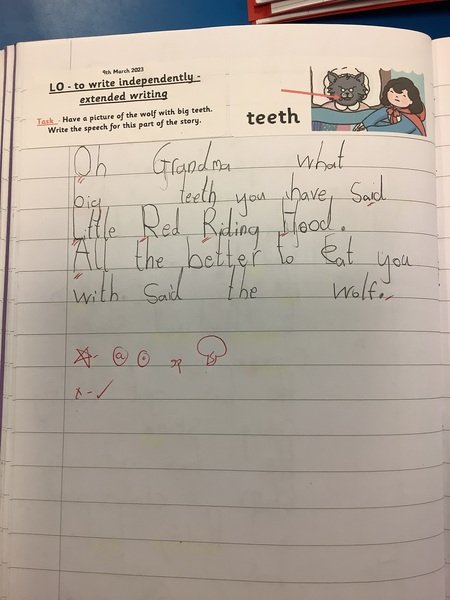 9th March 2023
LO - to write independently -
extended writing
Task - Have a picture of the wolf with big teeth.
Write the speech for this part of the story.
teeth
Oh Grandma what
big teeth you have said
Little Red Riding Hood.
All the better to Eat you
with said the wolf.